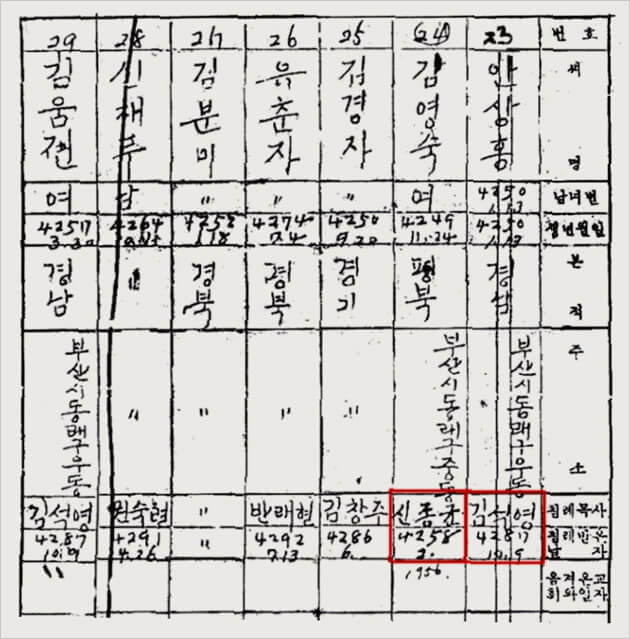 번호
씨명
남녀별
생년월일
본적
주소
침례목사
침례받은
날자
옴겨온교
회와일자
23
안상홍
4250
1.13
4250
1.13
경남
부산시동래구우동
김석영
4287
10.9
(24)
김영숙
여
4249
11.24
평북
부산시동래구중동
신종균
4258
3.
1956.
25
김경자
〃
4250
9.20
경기
〃
김창주
4286
6.
26
유춘자
〃
4274
7.4
평북
〃
반래현
4292
7.13
27
김분미
〃
4258
1.18
경북
〃
〃
〃
28
신재두
남
4264
〃
〃
4291
4.26
29
김움전
여
4257
3.30
경남
부산시동래구우동
김석영
4287
10.9
〃